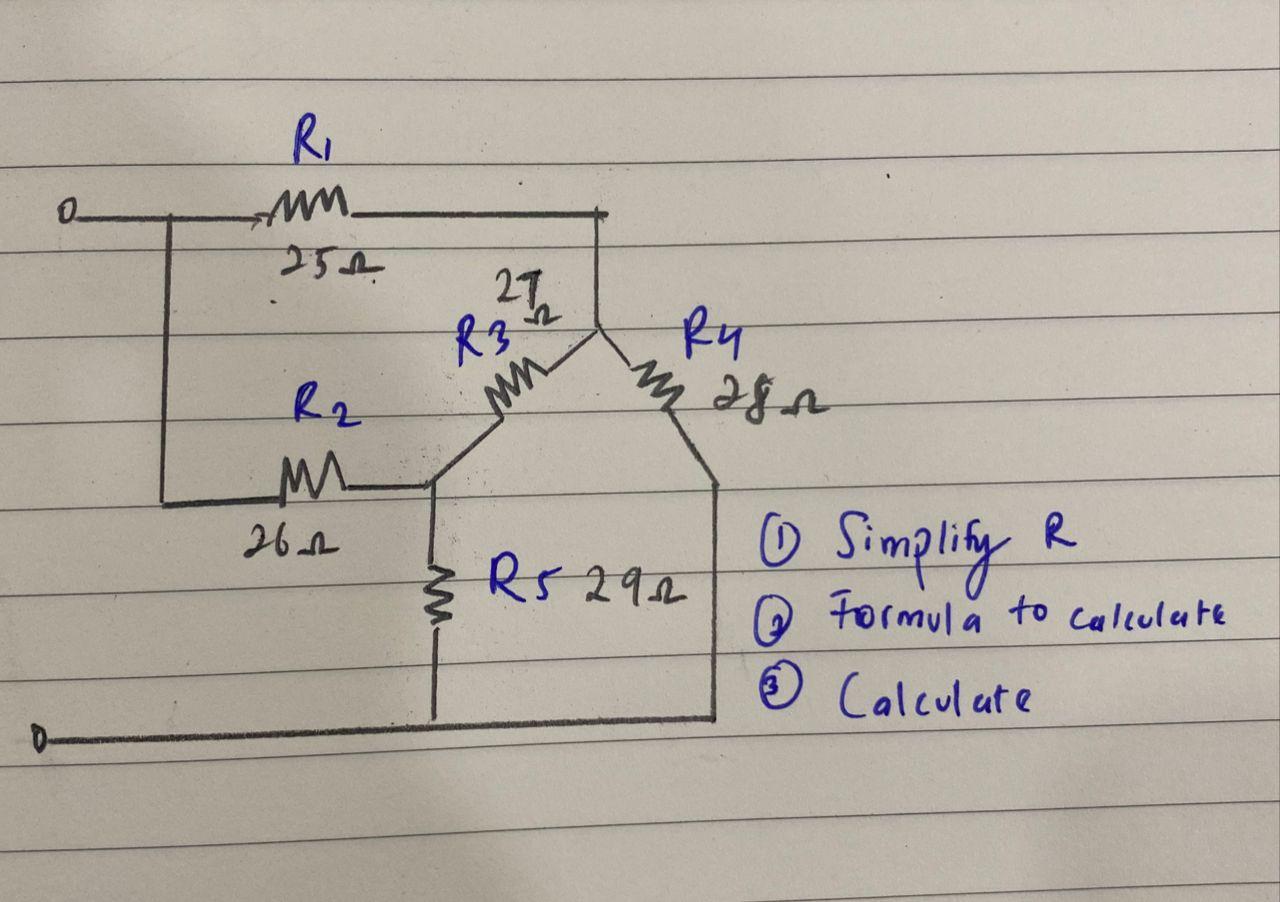 R1
25Ω
27
Ω
R3
R4
28Ω
R2
26Ω
R5 29Ω
① Simplify R
② Formula to calculate
③ Calculate